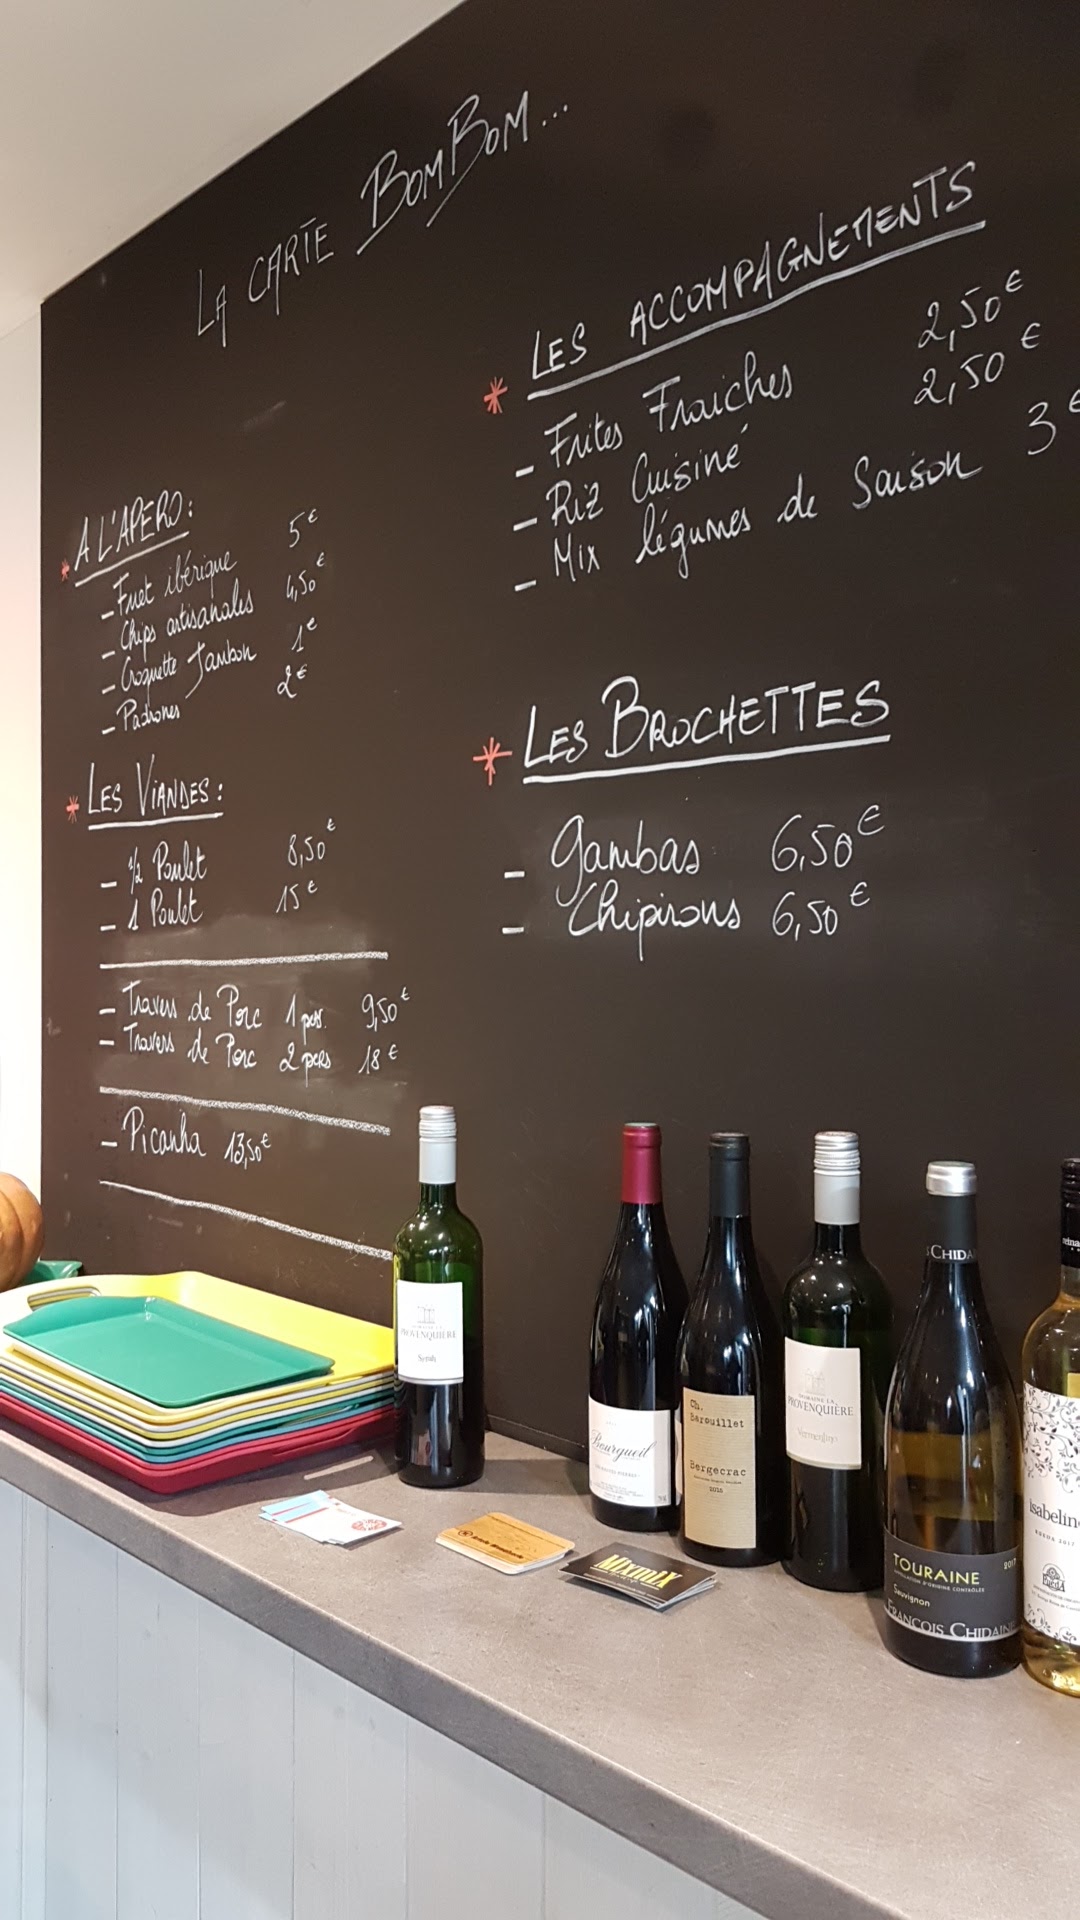 LA CARTE BOMBOM...
* A L'APERO :
- Fuet ibérique 5€
- Chips artisanales 4,50€
- Croquette Jambon 1€
- Padrones 2€
* LES VIANDES :
- 1/2 Poulet 8,50€
- 1 Poulet 15€
- Travers de Porc 1 pers. 9,50€
- Travers de Porc 2 pers 18€
- Picanha 13,50€
* LES ACCOMPAGNEMENTS
- Frites Fraiches 2,50€
- Riz Cuisiné 2,50€
- Mix légumes de Saison 3€
* LES BROCHETTES
- Gambas 6,50€
- Chipirons 6,50€
DOMAINE LA
PROVENQUIÈRE
Syrah
Bourgueil
Ch.
Barouillet
Bergecrac
2015
DOMAINE LA
PROVENQUIÈRE
CHIDA
TOURAINE 2017
APPELLATION D'ORIGINE CONTRÔLÉE
Sauvignon
FRANÇOIS CHIDAINE
isabelin
RUEDA 2017
RUEDA
MixmiX